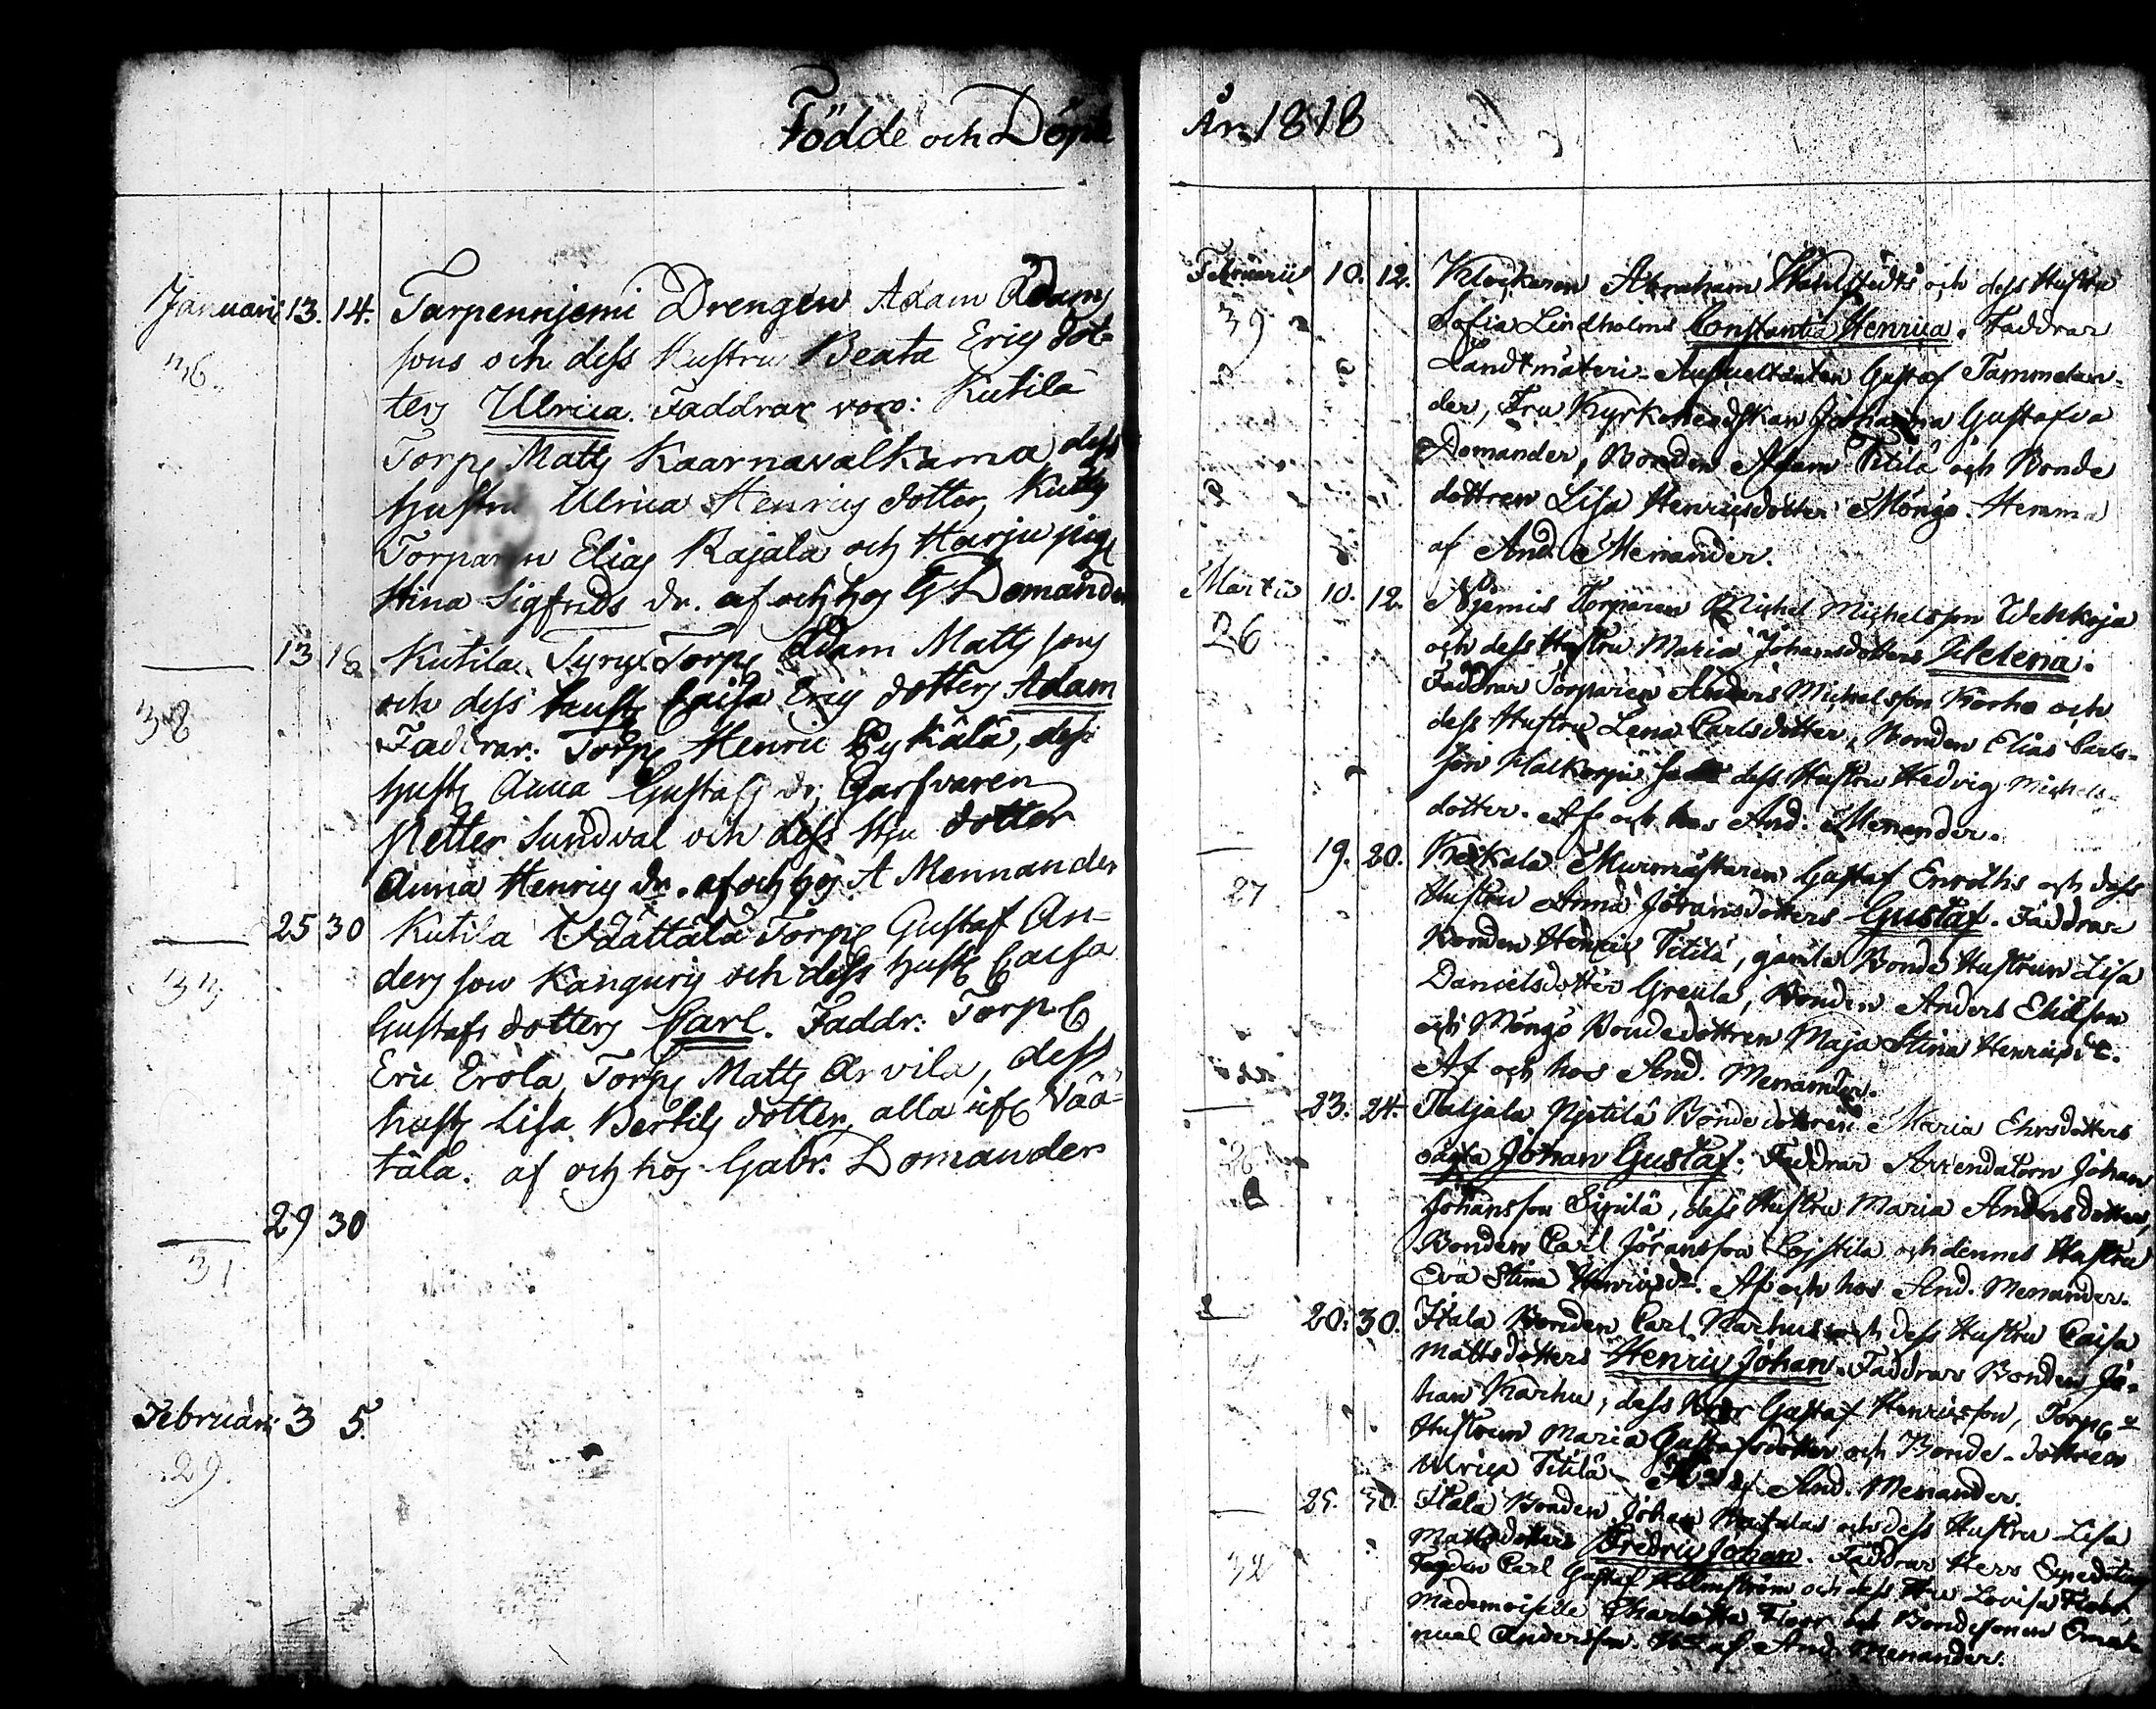 Födde och Döpte
Januarii 13. 14. Tarpennjemi Drengen Adam Adams
sons och dess Hustru Beata Erics dot-
36. ters Ulrica. Faddrar voro: Kutila
Torp. Matts Kaarnavalkama dess
hustru Ulrica Henrics dotter,
Torparen Elias Rajala och Harju pig.
Stina Sigfrids dr. af och hos G Domander
13 18 Kutila Torp. Adam Matts sons
och dess hust. Caisa Erics dotters Adam
38 Faddrar: Torp. Henric Eykälä, dess
hust. Anna Gustafs dr, Garfvaren
Petter Sundval och dess Hu dotter
Anna Henrics dr. af och hos A Mennander
25 30 Kutila Väättälä Torp. Gustaf An-
ders son Kanguris och dess hust. Caisa
Gustafs dotters Carl. Faddr: Torp.
Eric Erola, Torp. Matts Arvila, dess
hust. Lisa Bertils dotter, alla ifr. Vää-
tälä. af och hos Gabr. Domander
29 30
31
Februarii 3 5.
29.
År 1818
Februarii 10. 12. Klockaren Abraham Wahlstedts och dess Hustru
39 Sofia Lindholms Constantia Henrica. Faddrar
Landtmäteri-Auscultanten Gustaf Tammelan-
der, Fru Kyrkoherdskan Johanna Gustafva
Domander, Bonden Adam Titilä och Bonde
dottren Lisa Henricsdotter Möngö. Hemma
af And. Menander.
Martii 10. 12. Njemis Torparen Michel Michelsson Wehkoja
26 och dess Hustru Maria Johansdotters Helena.
Faddrar Torparen Anders Michelsson Korho och
dess Hustru Lena Carlsdotter, Bonden Elias Carls-
son Halkorpi dess Hustru Hedvig Michels-
dotter. Af och hos And. Menander.
19. 20. Keikala Murmästaren Gustaf Enroths och dess
27 Hustru Anna Jöransdotters Gustaf. Faddrar
Bonden Henric Titilä, gamla Bonde Hustrun Lisa
Danielsdotter Greula, Bonden Anders Eliasson
och Möngö Bondedottren Maja Stina Henricsdr.
Af och hos And. Menander.
23. 24. Taljala Pjetilä Bondedottren Maria Ehrsdotters
oägta Johan Gustaf. Faddrar Arrendatorn Johan
Johansson Sipilä, dess Hustru Maria Andersdotter,
Bonden Carl Jöransson Lojstila och dennes Hustru
Eva Stina Henricsdr. Af och hos And. Menander.
20. 30. Ittala Bonden Carl Karhus och dess Hustru Caisa
Mattsdotters Henric Johan. Faddrar Bonden Jo-
han Karhu, dess Bror Gustaf Henricsson, Torp.
Hustrun Maria Gustafsdotter och Bonde-dottren
Ulrica Titilä. af And. Menander.
25. 30. Ittala Bonden Johan och dess Hustru Lisa
Mattsdotters Fredric Johan. Faddrar Herr Expeditions
32 Fogden Carl Gustaf Holmström och dess Fru Lovisa
Mademoiselle Charlotta och Bondesonen Ema-
nuel Andersson. af And. Menander.